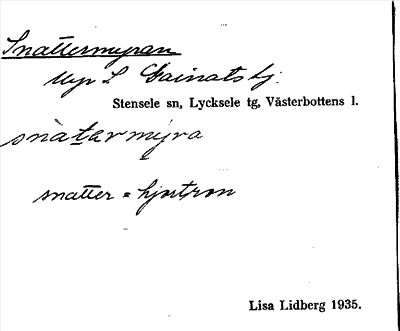 Snattermyran
Myr L Gainatsbj:
Stensele sn, Lycksele tg, Västerbottens l.
snàtarmýra
snatter = hjortron
Lisa Lidberg 1935.